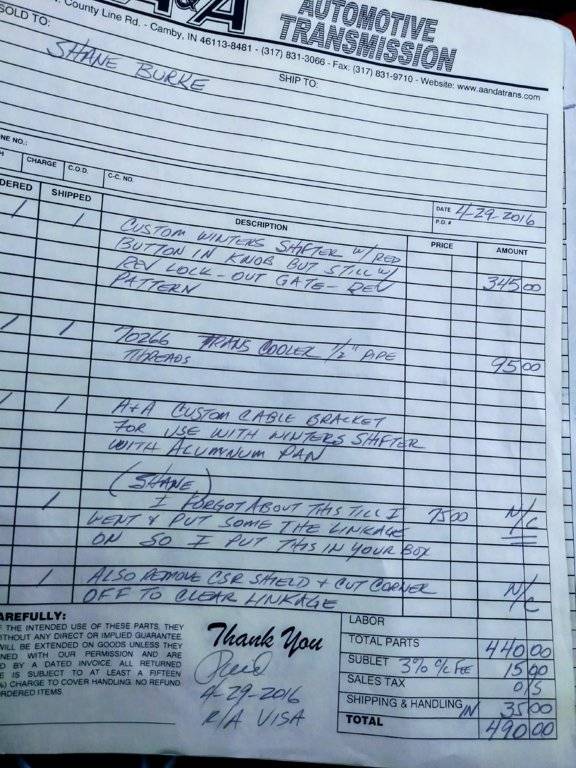 A&A
AUTOMOTIVE
TRANSMISSION
County Line Rd. - Camby, IN 46113-8481 - (317) 831-3066 - Fax: (317) 831-9710 - Website: www.aandatrans.com
SOLD TO:
SHIP TO:
SHANE BURKE
NE NO.:
CHARGE C.O.D. C-C. NO.
DATE 4-29-2016
P.O.#
DERED SHIPPED DESCRIPTION PRICE AMOUNT
1 1 CUSTOM WINTERS SHIFTER W/ RED
BUTTON IN KNOB BUT STILL W/
REV LOCK-OUT GATE - REV
PATTERN 345 00
1 1 70266 TRANS COOLER 1/2" PIPE
THREADS 95 00
1 1 A+A CUSTOM CABLE BRACKET
FOR USE WITH WINTERS SHIFTER
WITH ALUMNUM PAN
(SHANE)
1 I FORGOT ABOUT THIS TILL I 75 00 N/C
WENT & PUT SOME THE LINKAGE
ON SO I PUT THIS IN YOUR BOX
1 ALSO REMOVE CSR SHIELD + CUT CORNER N/C
OFF TO CLEAR LINKAGE
AREFULLY:
THE INTENDED USE OF THESE PARTS. THEY
ITHOUT ANY DIRECT OR IMPLIED GUARANTEE.
WILL BE EXTENDED ON GOODS UNLESS THEY
NED WITH OUR PERMISSION AND ARE
D BY A DATED INVOICE. ALL RETURNED
E IS SUBJECT TO AT LEAST A FIFTEEN
) CHARGE TO COVER HANDLING. NO REFUND
RDERED ITEMS.
Thank You
Paid
4-29-2016
R/A VISA
LABOR
TOTAL PARTS 440 00
SUBLET 3% % FEE 15 00
SALES TAX O/S
SHIPPING & HANDLING IN 35 00
TOTAL 490 00